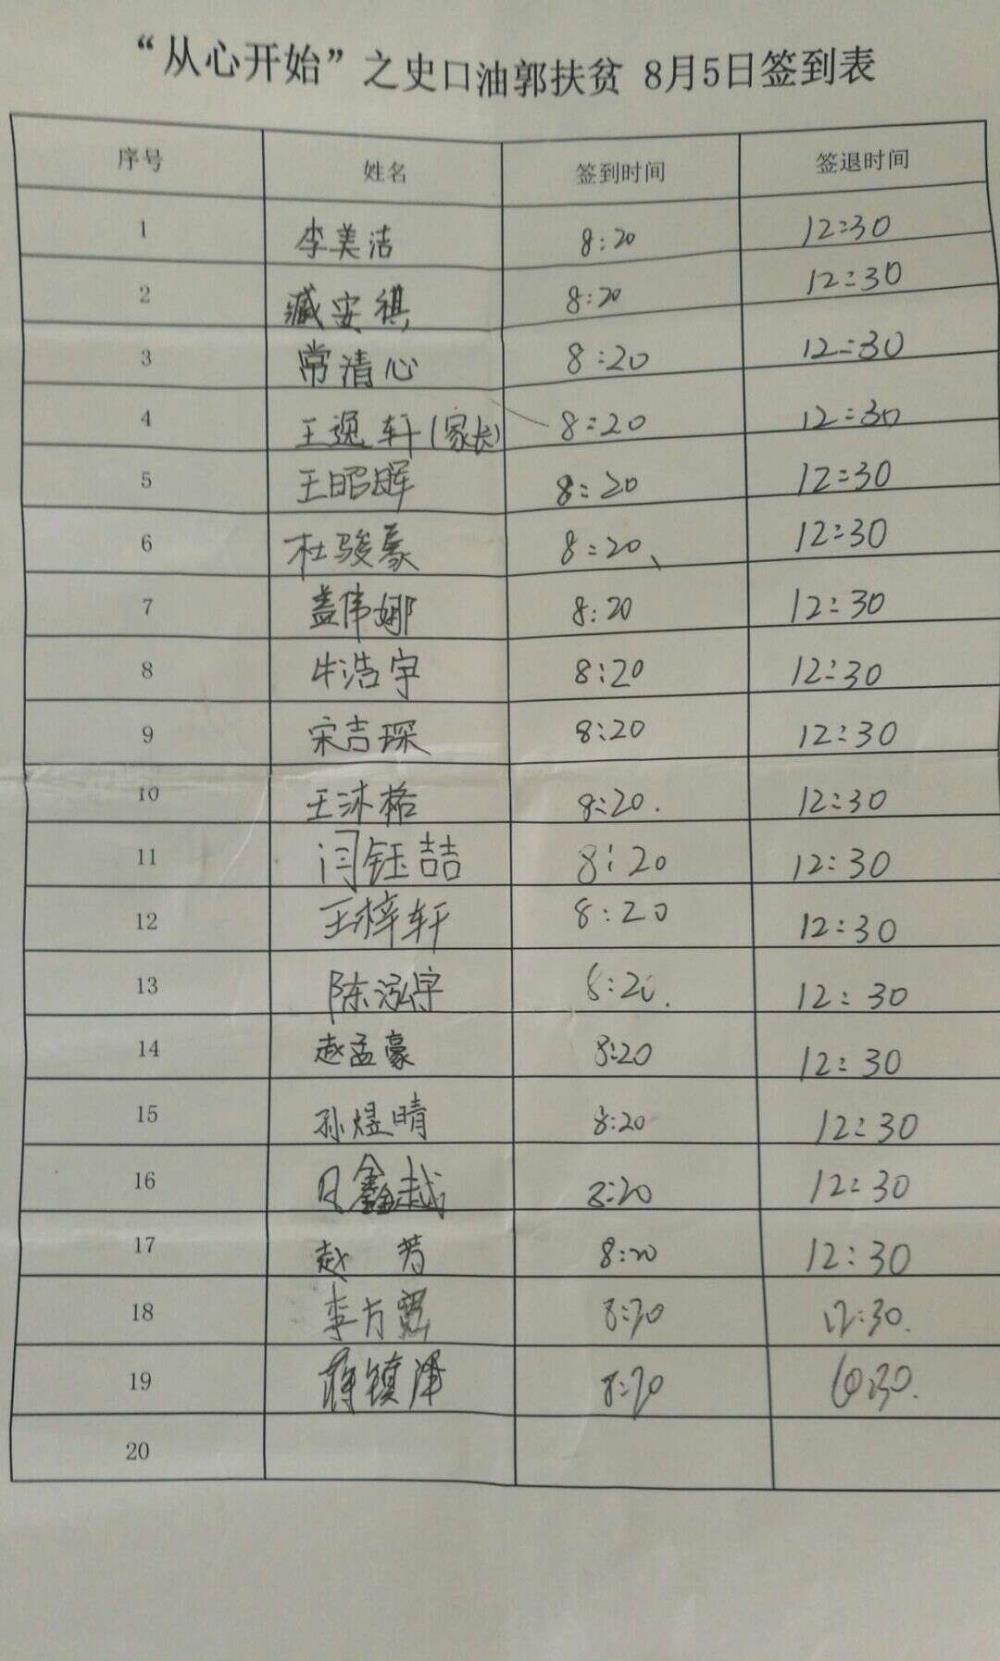 “从心开始”之史口油郭扶贫 8月5日签到表
序号 姓名 签到时间 签退时间
1 李美洁 8:20 12:30
2 臧安祺 8:20 12:30
3 常清心 8:20 12:30
4 王逸轩(家长) 8:20 12:30
5 王昭晖 8:20 12:30
6 杜骏豪 8:20 12:30
7 盖伟娜 8:20 12:30
8 牛浩宇 8:20 12:30
9 宋吉琛 8:20 12:30
10 王沐格 8:20. 12:30
11 闫钰喆 8:20 12:30
12 王梓轩 8:20 12:30
13 陈泓宇 8:20. 12:30
14 赵孟豪 8:20 12:30
15 孙煜晴 8:20 12:30
16 鑫越 8:20 12:30
17 赵芳 8:20 12:30
18 李方 8:20 12:30.
19 蒋镇泽 8:20 :30.
20